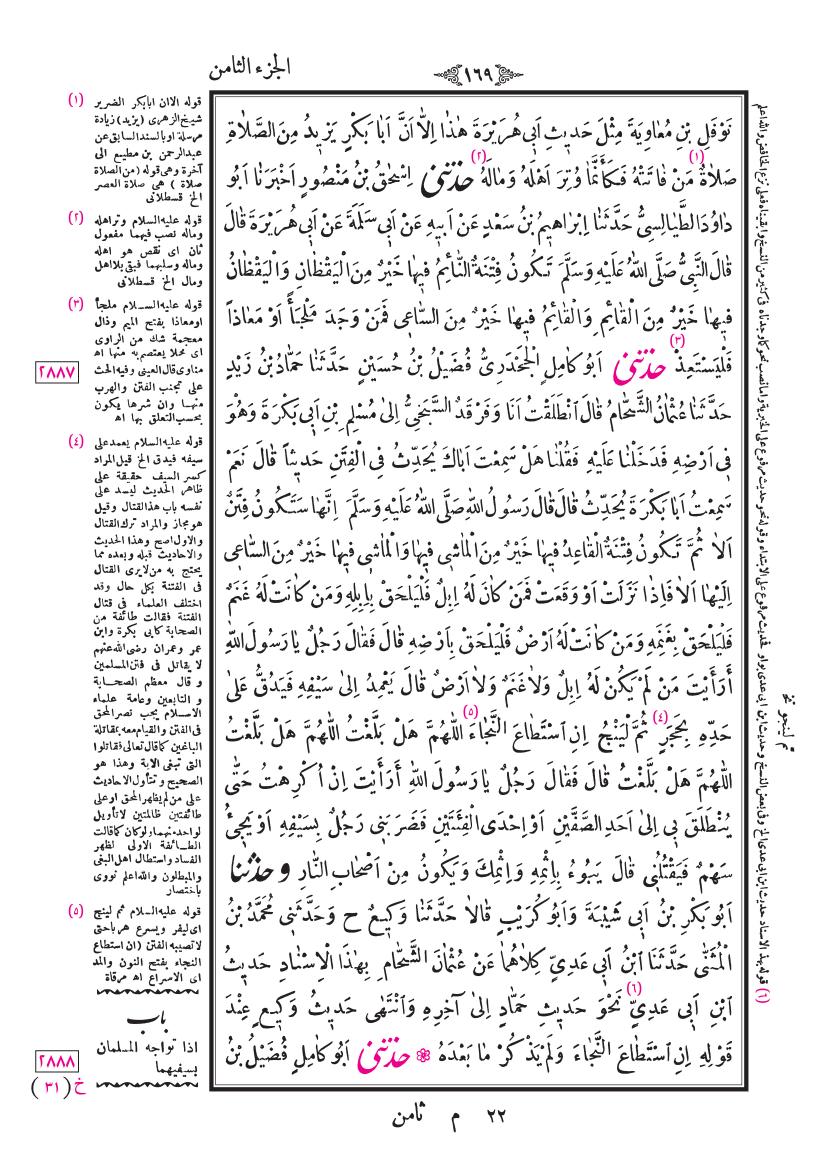 ١٦٩
الجزء الثامن
نَوْفَلِ بْنِ مُعَاوِيَةَ مِثْلَ حَديثِ اَبِى هُرَيْرَةَ هٰذَا اِلاَّ اَنَّ اَبَا بَكْرٍ يَزِيدُ مِنَ الصَّلَاةِ
صَلَاةٌ (١) مَنْ فَاتَتْهُ فَكَأَنَّمَا وُتِرَ اَهْلَهُ وَمَالَهُ (٢) حَدَّثَنِى اِسْحٰقُ بْنُ مَنْصُورٍ اَخْبَرَنَا اَبُو
دَاوُدَ الطَّيَالِسِىُّ حَدَّثَنَا اِبْرَاهِيمُ بْنُ سَعْدٍ عَنْ اَبِيهِ عَنْ اَبِى سَلَمَةَ عَنْ اَبِى هُرَيْرَةَ قَالَ
قَالَ النَّبِىُّ صَلَّى اللهُ عَلَيْهِ وَسَلَّمَ تَكُونُ فِتْنَةٌ النَّائِمُ فِيهَا خَيْرٌ مِنَ الْيَقْظَانِ وَالْيَقْظَانُ
فِيهَا خَيْرٌ مِنَ الْقَائِمِ وَالْقَائِمُ فِيهَا خَيْرٌ مِنَ السَّاعِى فَمَنْ وَجَدَ مَلْجَأً اَوْ مَعَاذاً
فَلْيَسْتَعِذْ (٣) حَدَّثَنِى اَبُو كَامِلٍ الْجَحْدَرِىُّ فُضَيْلُ بْنُ حُسَيْنٍ حَدَّثَنَا حَمَّادُ بْنُ زَيْدٍ
حَدَّثَنَا عُثْمَانُ الشَّحَّامُ قَالَ انْطَلَقْتُ اَنَا وَفَرْقَدٌ السَّبَخِىُّ اِلىٰ مُسْلِمِ بْنِ اَبِى بَكْرَةَ وَهُوَ
فِى اَرْضِهِ فَدَخَلْنَا عَلَيْهِ فَقُلْنَا هَلْ سَمِعْتَ اَبَاكَ يُحَدِّثُ فِى الْفِتَنِ حَدِيثاً قَالَ نَعَمْ
سَمِعْتُ اَبَا بَكْرَةَ يُحَدِّثُ قَالَ قَالَ رَسُولُ اللهِ صَلَّى اللهُ عَلَيْهِ وَسَلَّمَ اِنَّهَا سَتَكُونُ فِتَنٌ
اَلَا ثُمَّ تَكُونُ فِتْنَةٌ الْقَاعِدُ فِيهَا خَيْرٌ مِنَ الْمَاشِى فِيهَا وَالْمَاشِى فِيهَا خَيْرٌ مِنَ السَّاعِى
اِلَيْهَا اَلَا فَاِذَا نَزَلَتْ اَوْ وَقَعَتْ فَمَنْ كَانَ لَهُ اِبِلٌ فَلْيَلْحَقْ بِاِبِلِهِ وَمَنْ كَانَتْ لَهُ غَنَمٌ
فَلْيَلْحَقْ بِغَنَمِهِ وَمَنْ كَانَتْ لَهُ اَرْضٌ فَلْيَلْحَقْ بِاَرْضِهِ قَالَ فَقَالَ رَجُلٌ يَا رَسُولَ اللهِ
أَرَأَيْتَ مَنْ لَمْ يَكُنْ لَهُ اِبِلٌ وَلَا غَنَمٌ وَلَا اَرْضٌ قَالَ يَعْمِدُ اِلىٰ سَيْفِهِ فَيَدُقُّ عَلىٰ
حَدِّهِ بِحَجَرٍ (٤) ثُمَّ لْيَنْجُ اِنِ اسْتَطَاعَ النَّجَاءَ (٥) اَللّٰهُمَّ هَلْ بَلَّغْتُ اَللّٰهُمَّ هَلْ بَلَّغْتُ
اَللّٰهُمَّ هَلْ بَلَّغْتُ قَالَ فَقَالَ رَجُلٌ يَا رَسُولَ اللهِ أَرَأَيْتَ اِنْ اُكْرِهْتُ حَتّٰى
يُنْطَلَقَ بِى اِلىٰ اَحَدِ الصَّفَّيْنِ اَوْ اِحْدَى الْفِئَتَيْنِ فَضَرَبَنِى رَجُلٌ بِسَيْفِهِ اَوْ يَجِئُ
سَهْمٌ فَيَقْتُلُنِى قَالَ يَبُوءُ بِاِثْمِهِ وَاِثْمِكَ وَيَكُونُ مِنْ اَصْحَابِ النَّارِ وَحَدَّثَنَا
اَبُو بَكْرِ بْنُ اَبِى شَيْبَةَ وَاَبُو كُرَيْبٍ قَالَا حَدَّثَنَا وَكِيعٌ ح وَحَدَّثَنِى مُحَمَّدُ بْنُ
الْمُثَنّٰى حَدَّثَنَا ابْنُ اَبِى عَدِىٍّ كِلَاهُمَا عَنْ عُثْمَانَ الشَّحَّامِ بِهٰذَا الْاِسْنَادِ حَدِيثُ
ابْنِ اَبِى عَدِىٍّ (٦) نَحْوَ حَدِيثِ حَمَّادٍ اِلىٰ آخِرِهِ وَانْتَهٰى حَدِيثُ وَكِيعٍ عِنْدَ
قَوْلِهِ اِنِ اسْتَطَاعَ النَّجَاءَ وَلَمْ يَذْكُرْ مَا بَعْدَهُ حَدَّثَنِى اَبُو كَامِلٍ فُضَيْلُ بْنُ
(١) قوله الا ان ابابكر الضرير
شيخ الزهرى (يزيد) زيادة
مرسلة او بالسند السابق عن
عبدالرحمن بن مطيع الى
آخره وهى قوله (من الصلاة
صلاة) هى صلاة العصر
الخ قسطلانى
(٢) قوله عليه السلام وتر اهله
وماله نصب فيهما مفعول
ثان اى نقص هو اهله
وماله وسلبهما فبقى بلااهل
ومال الخ قسطلانى
(٣) قوله عليه السلام ملجأ
اومعاذا بفتح الميم وذال
معجمة شك من الراوى
اى محلا يعتصم به منها اه
مناوى قال العينى وفيه الحث
على تجنب الفتن والهرب
منها وان شرها يكون
بحسب التعلق بها اه
(٤) قوله عليه السلام يعمد على
سيفه فيدق الخ قيل المراد
كسر السيف حقيقة على
ظاهر الحديث ليسد على
نفسه باب هذا القتال وقيل
هو مجاز والمراد ترك القتال
والاول اصح وهذا الحديث
والاحاديث قبله وبعده مما
يحتج به من لايرى القتال
فى الفتنة بكل حال وقد
اختلف العلماء فى قتال
الفتنة فقالت طائفة من
الصحابة كابى بكرة وابن
عمر وعمران رضى الله عنهم
لا يقاتل فى فتن المسلمين
و قال معظم الصحابة
و التابعين وعامة علماء
الاسلام يجب نصر المحق
فى الفتن والقيام معه بمقاتلة
الباغين كما قال تعالى فقاتلوا
التى تبغى الاية وهذا هو
الصحيح و تتأول الاحاديث
على من لم يظهر المحق او على
طائفتين ظالمتين لا تأويل
لواحدة منهما ولو كان كما قالت
الطائفة الاولى لظهر
الفساد واستطال اهل البغى
والمبطلون والله اعلم نووى
باختصار
(٥) قوله عليه السلام ثم لينج
اى ليفر ويسرع هربا حتى
لا تصيبه الفتن (ان استطاع
النجاء بفتح النون والمد
اى الاسراع اه مرقاة
باب
اذا تواجه المسلمان
بسيفيهما
٢٨٨٧
٢٨٨٨
خ (٣١)
(٦) قوله بهذا الاسناد حديث ابن ابى عدى الخ وفى بعض النسخ وحديث ابن ابى عدى بواو
ثم لينجو نخ
٢٢ م ثامن